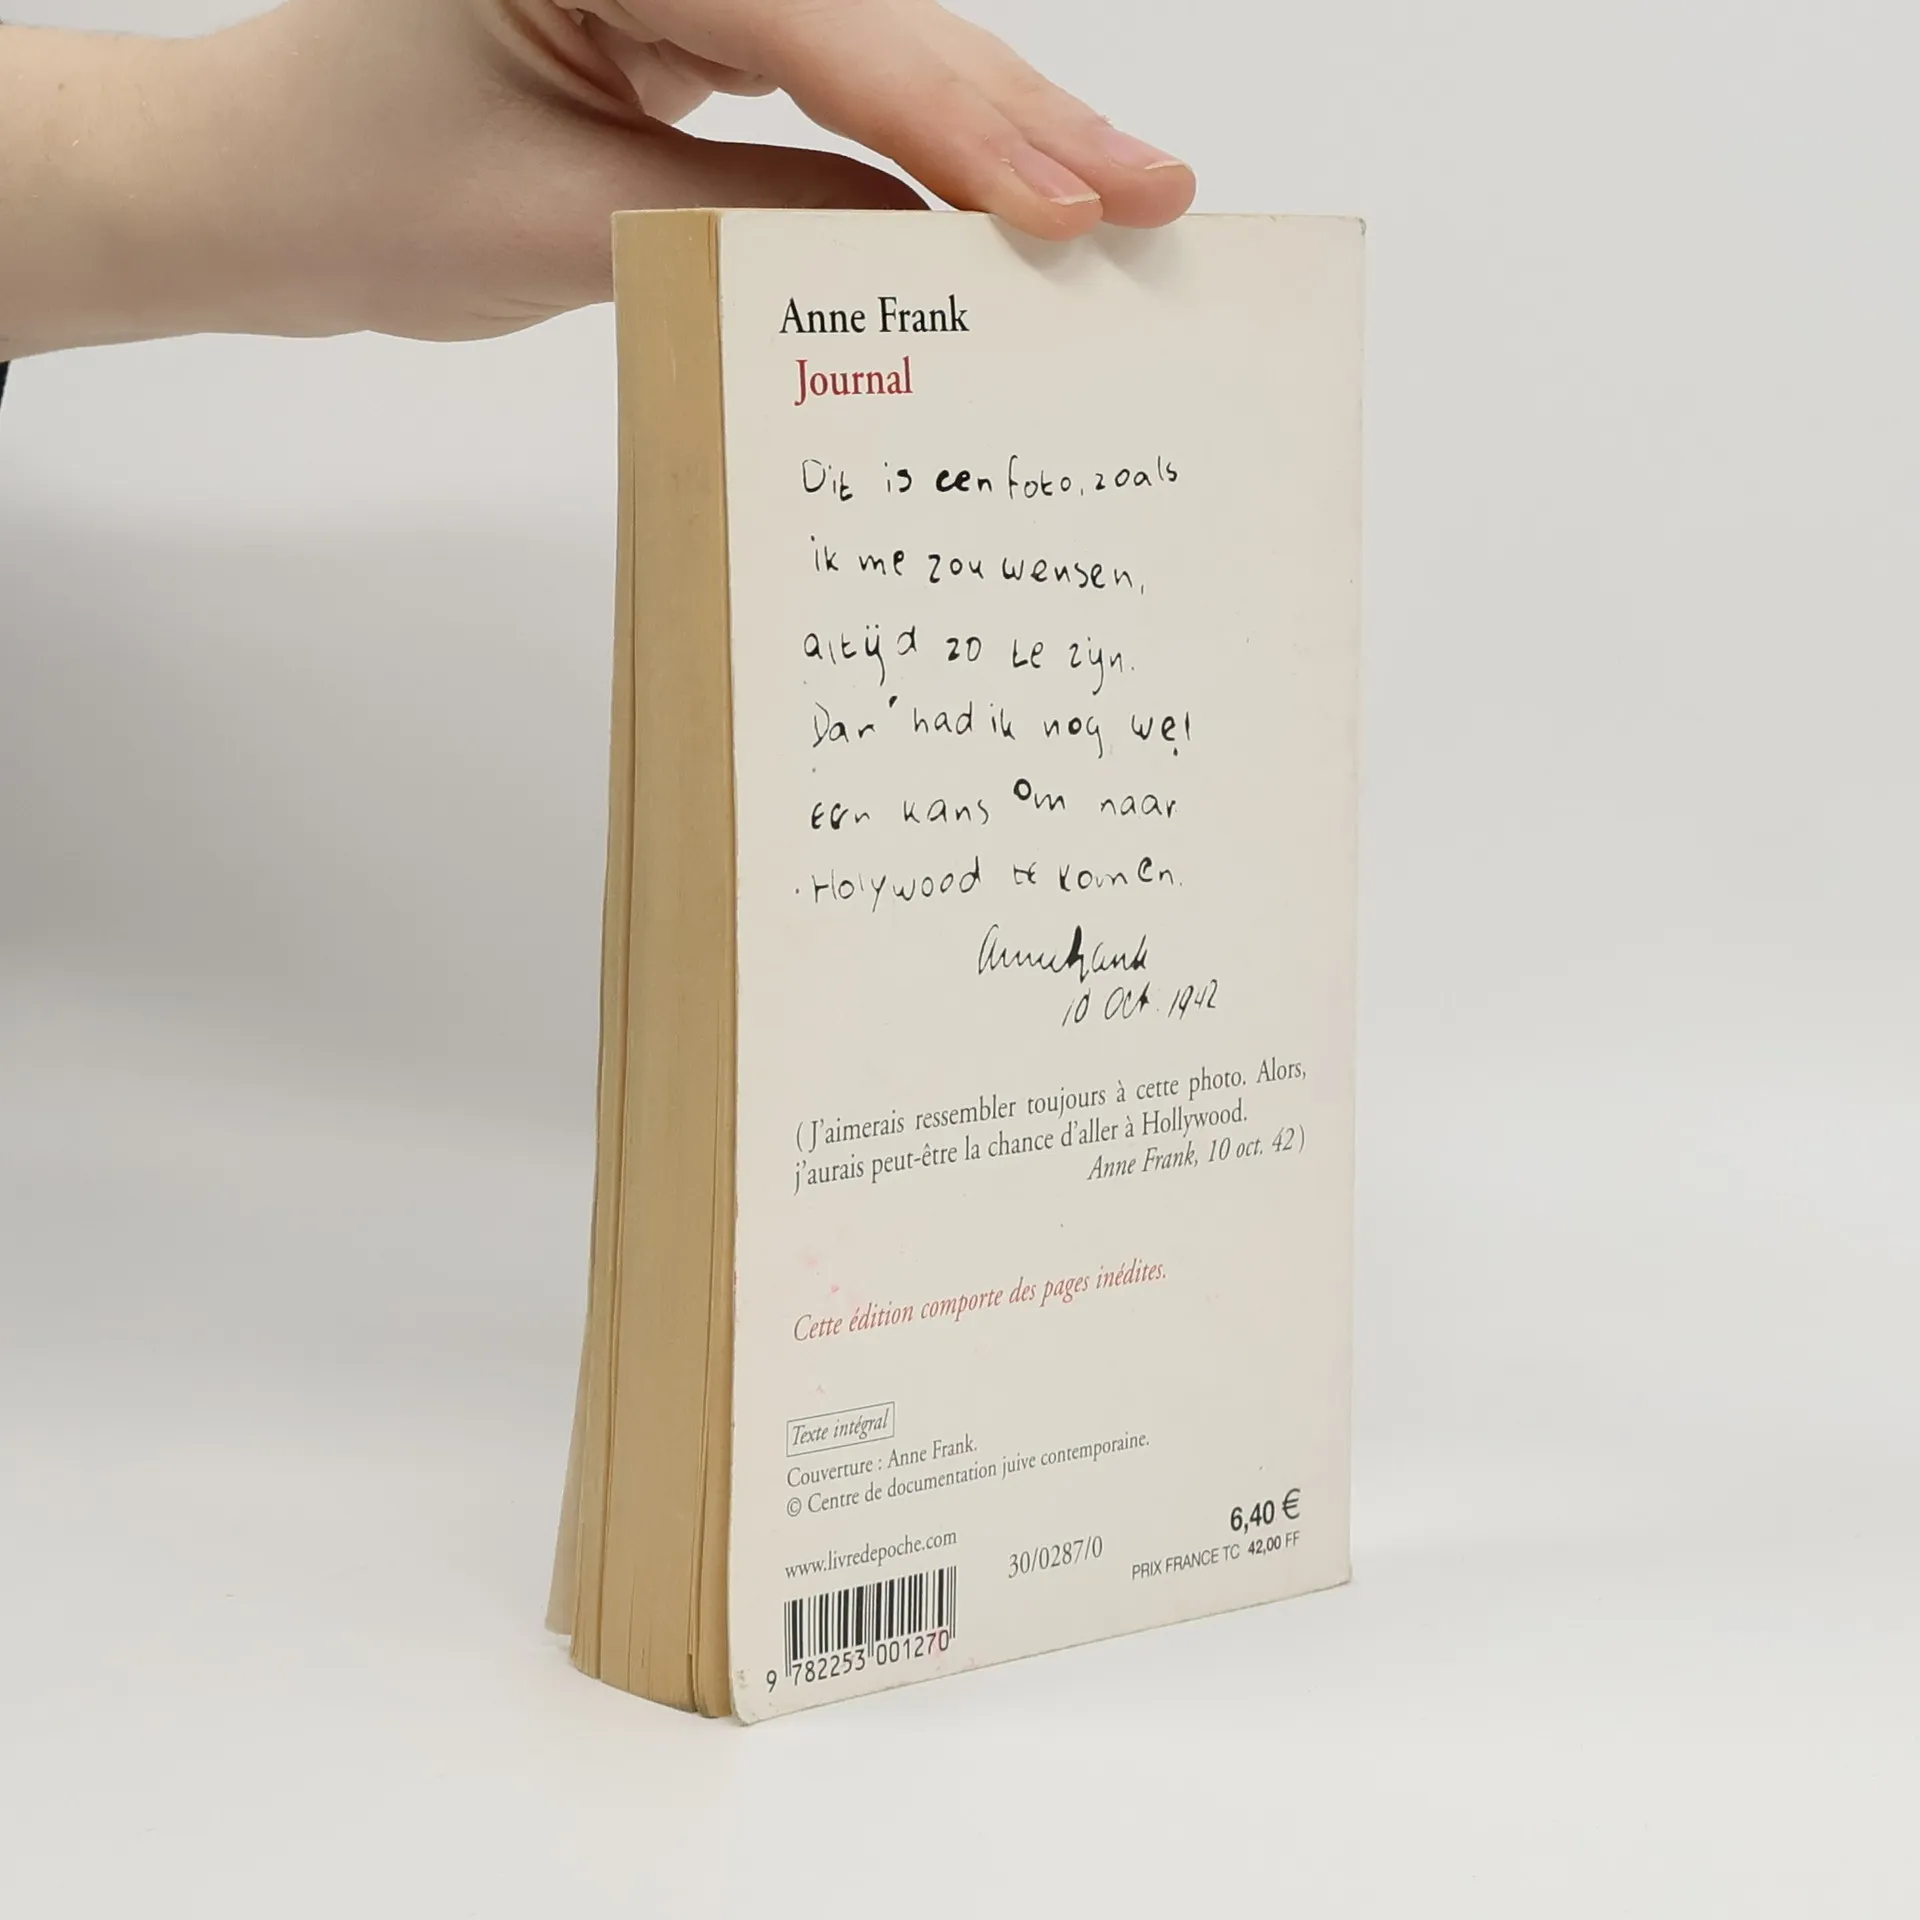 Anne Frank
Journal
Dit is een foto, zoals
ik me zou wensen,
altijd zo te zijn.
Dan had ik nog wel
een kans om naar
Holywood te komen.
Annefrank
10 Oct. 1942
( J'aimerais ressembler toujours à cette photo. Alors,
j'aurais peut-être la chance d'aller à Hollywood.
Anne Frank, 10 oct. 42 )
Cette édition comporte des pages inédites.
Texte intégral
Couverture : Anne Frank.
© Centre de documentation juive contemporaine.
www.livredepoche.com
30/0287/0
6,40 €
PRIX FRANCE TC 42,00 FF
9 782253 001270